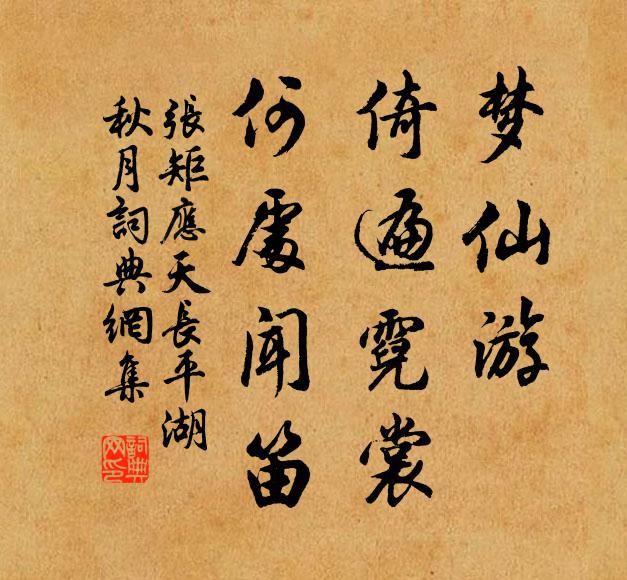 梦仙游
倚遍霓裳
何處闻笛
張矩應天長平湖
秋月詞典網集
詞典網印